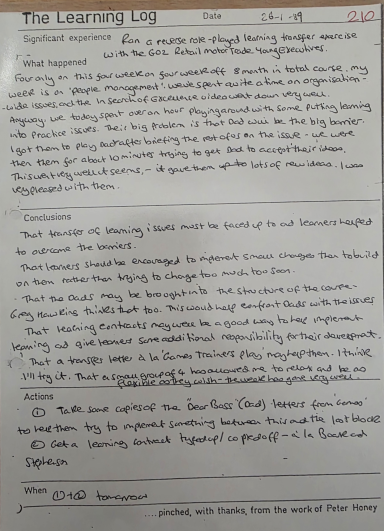 The Learning Log Date 26-1-89 210
Significant experience Ran a reverse role-played learning transfer exercise
with the G02 Retail motor Trade Young Executives.
What happened
Four only on this four week on four week off 8 month in total course, my
week is on 'people management'. We've spent quite a time on organisation-
-wide issues, and the In Search of Excellence video went down very well.
Anyway, we today spent over an hour playing around with some putting learning
into Practice issues. Their big problem is that Dad will be the big barrier.
I got them to play Dad after briefing the rest of us on the issue - we were
then them for about 10 minutes trying to get Dad to accept their ideas.
This went very well it seems, - it gave them lots of new ideas. I was
very pleased with them.
Conclusions
That transfer of learning issues must be faced up to and learners helped
to overcome the barriers.
That learners should be encouraged to implement small changes then to build
on them rather than trying to change too much too soon.
That the Dads may be brought into the structure of the course -
Greg Hawking thinks that too. This would help confront Dads with the issues
That learning contracts may well be a good way to help implement
learning and give learners some additional responsibility for their development.
That a transfer letter à la 'Games Trainers Play' may help them. I think
I'll try it. That a small group of 4 has allowed me to relax and be as
flexible as they wish - the week has gone very well.
Actions
① Take some copies of the "Dear Boss" (Dad) letters from Games
to help them try to implement something between this and the last block
② Get a learning contract typed up/copied off - à la Boak and
Stephenson
When ① + ② tomorrow
....pinched, with thanks, from the work of Peter Honey